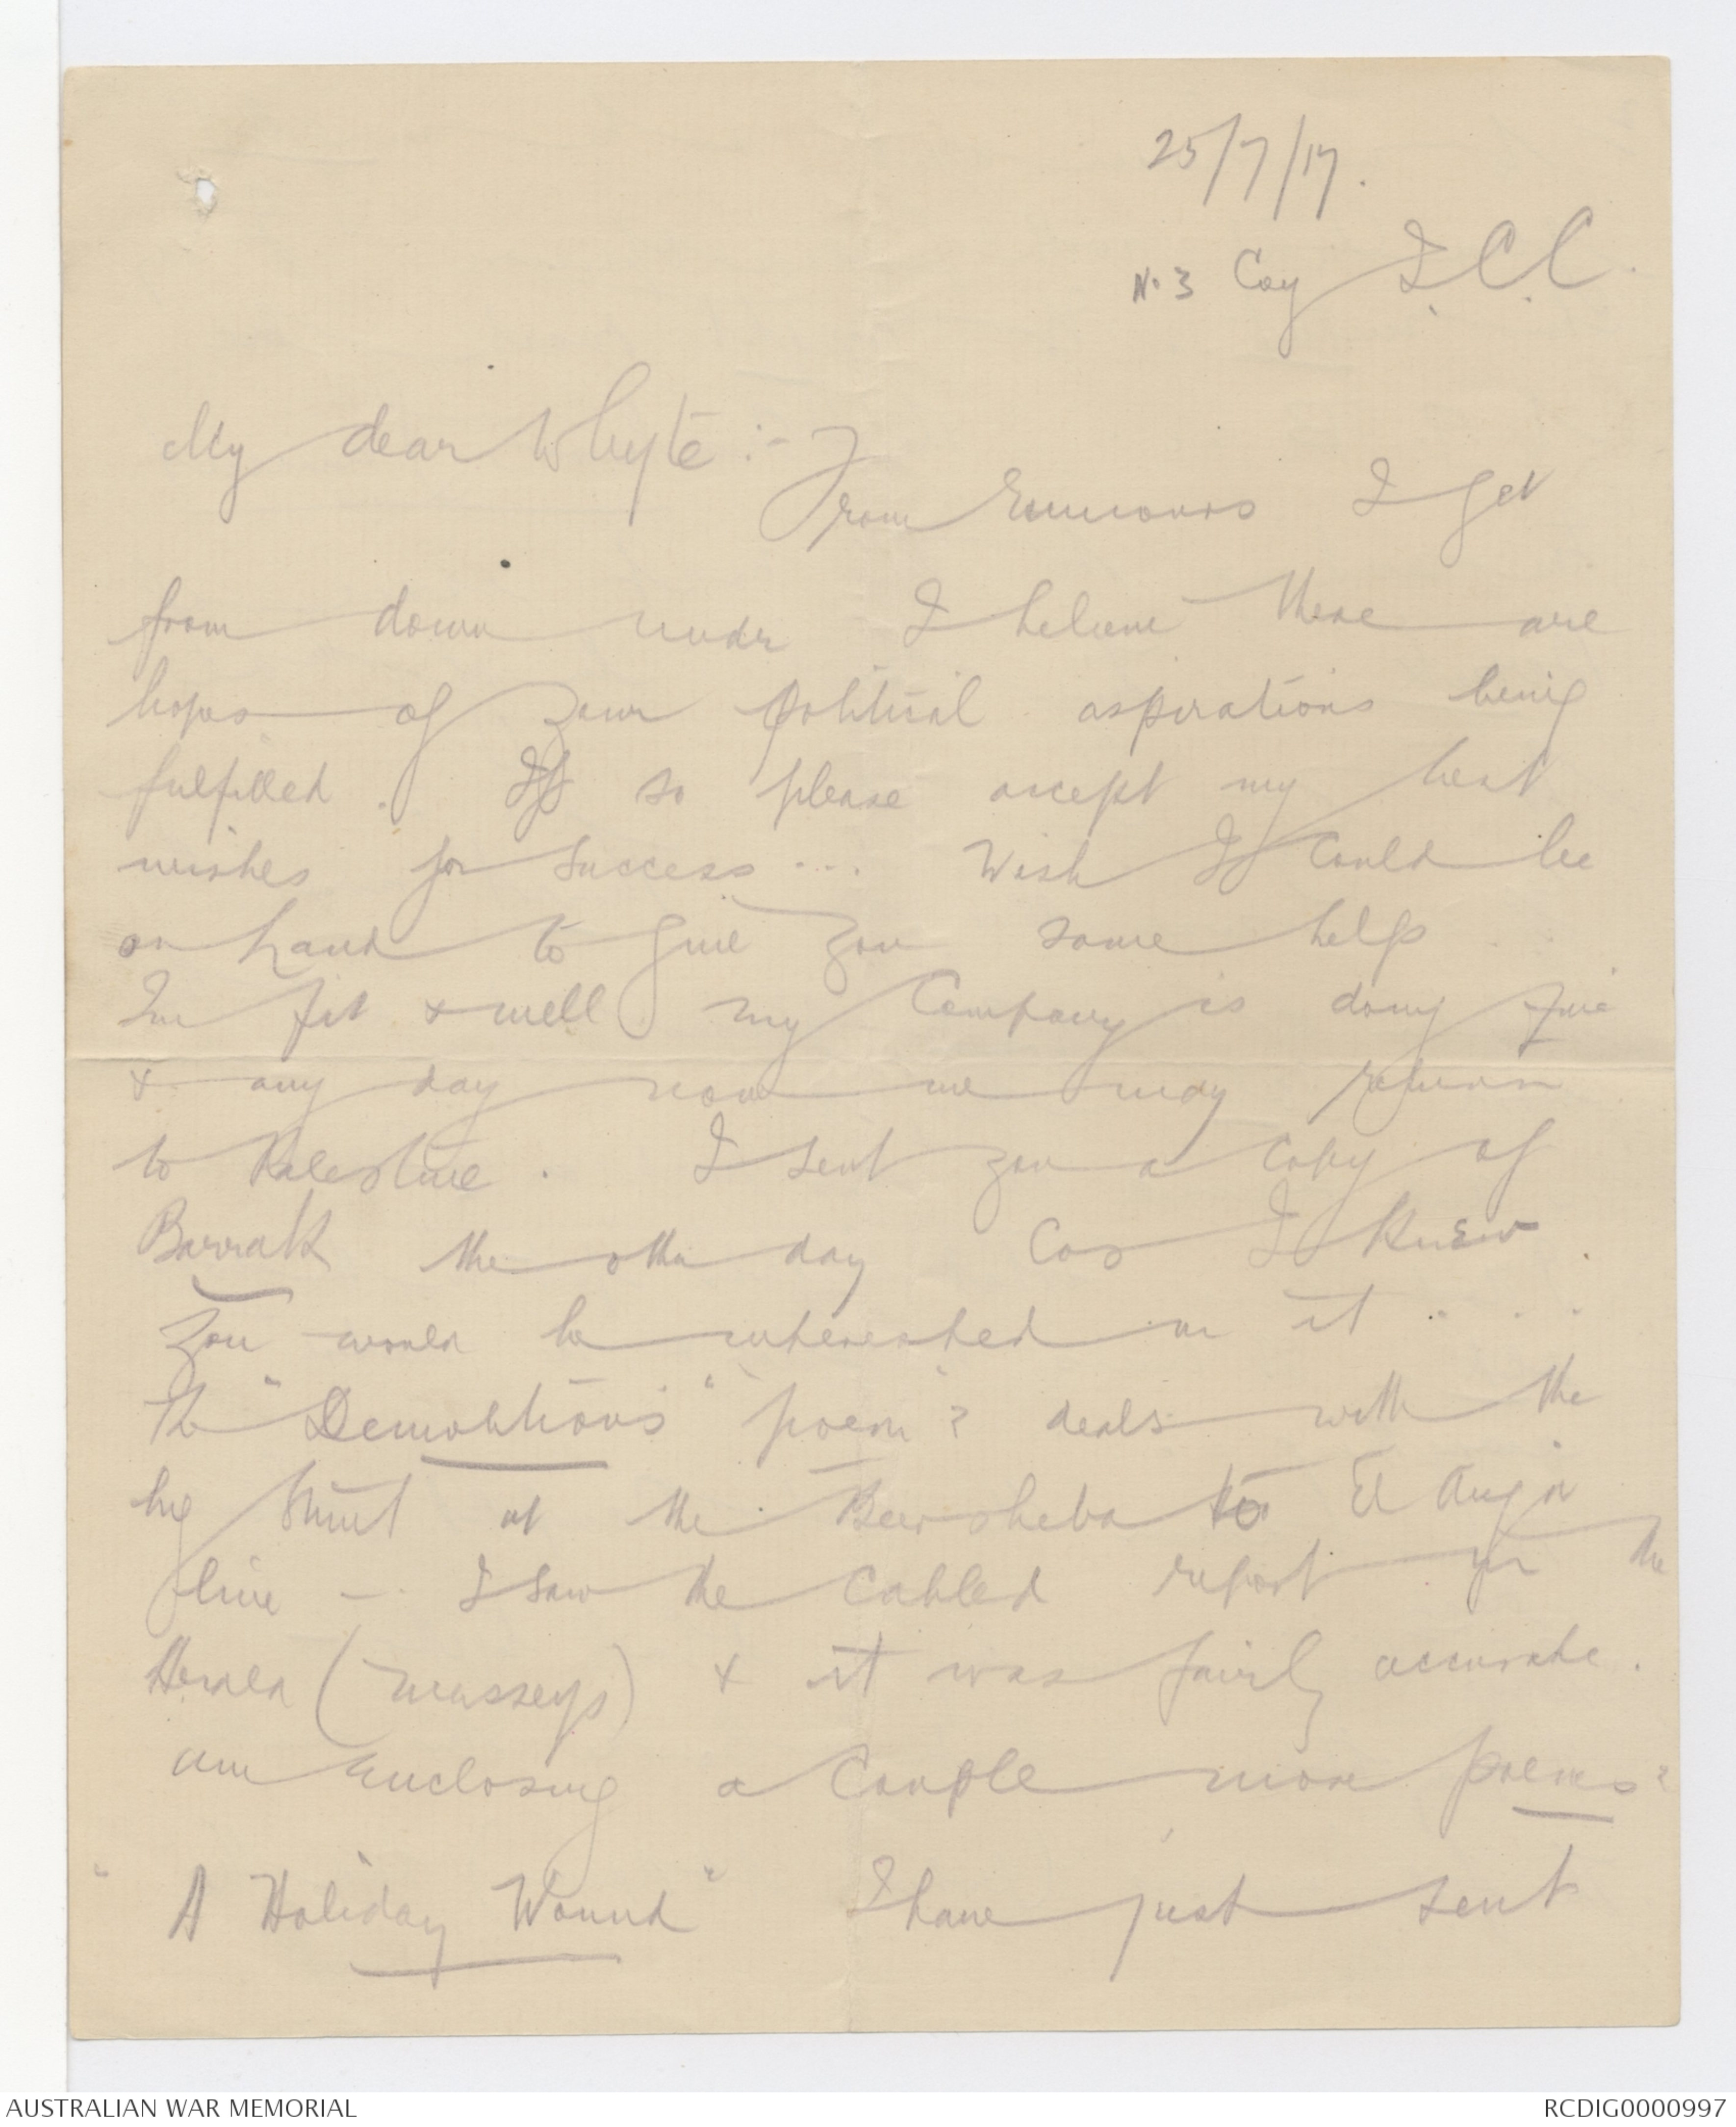 25/7/17.
No 3 Coy I.C.C.
My dear Whyte :-
From rumours I get
from down under I believe there are
hopes of your political aspirations being
fulfilled. If so please accept my best
wishes for success... Wish I could be
on hand to give you some help
Im fit & well my Company is doing fine
& any day now we may return
to Palestine. I sent you a copy of
Barrak the other day Cos I knew.
you would be interested in it . . .
The "Demolitions" "poem"? deals with the
big stunt at the Beersheba to El Auja
line - I saw the cabled report in the
Herald (Masseys) & it was fairly accurate.
am enclosing a couple more poems?
"A Holiday Wound" I have just sent
AUSTRALIAN WAR MEMORIAL
RCDIG0000997